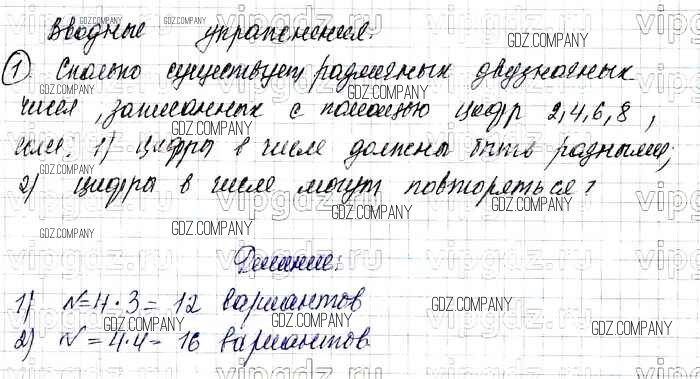 Вводные упражнения.
① Сколько существует различных двузначных
чисел, записанных с помощью цифр 2,4,6,8,
если: 1) цифры в числе должны быть разными;
2) цифры в числе могут повторяться?
Решение:
1) N=4·3= 12 вариантов
2) N=4·4= 16 вариантов
GDZ.COMPANY
vipgdz.ru